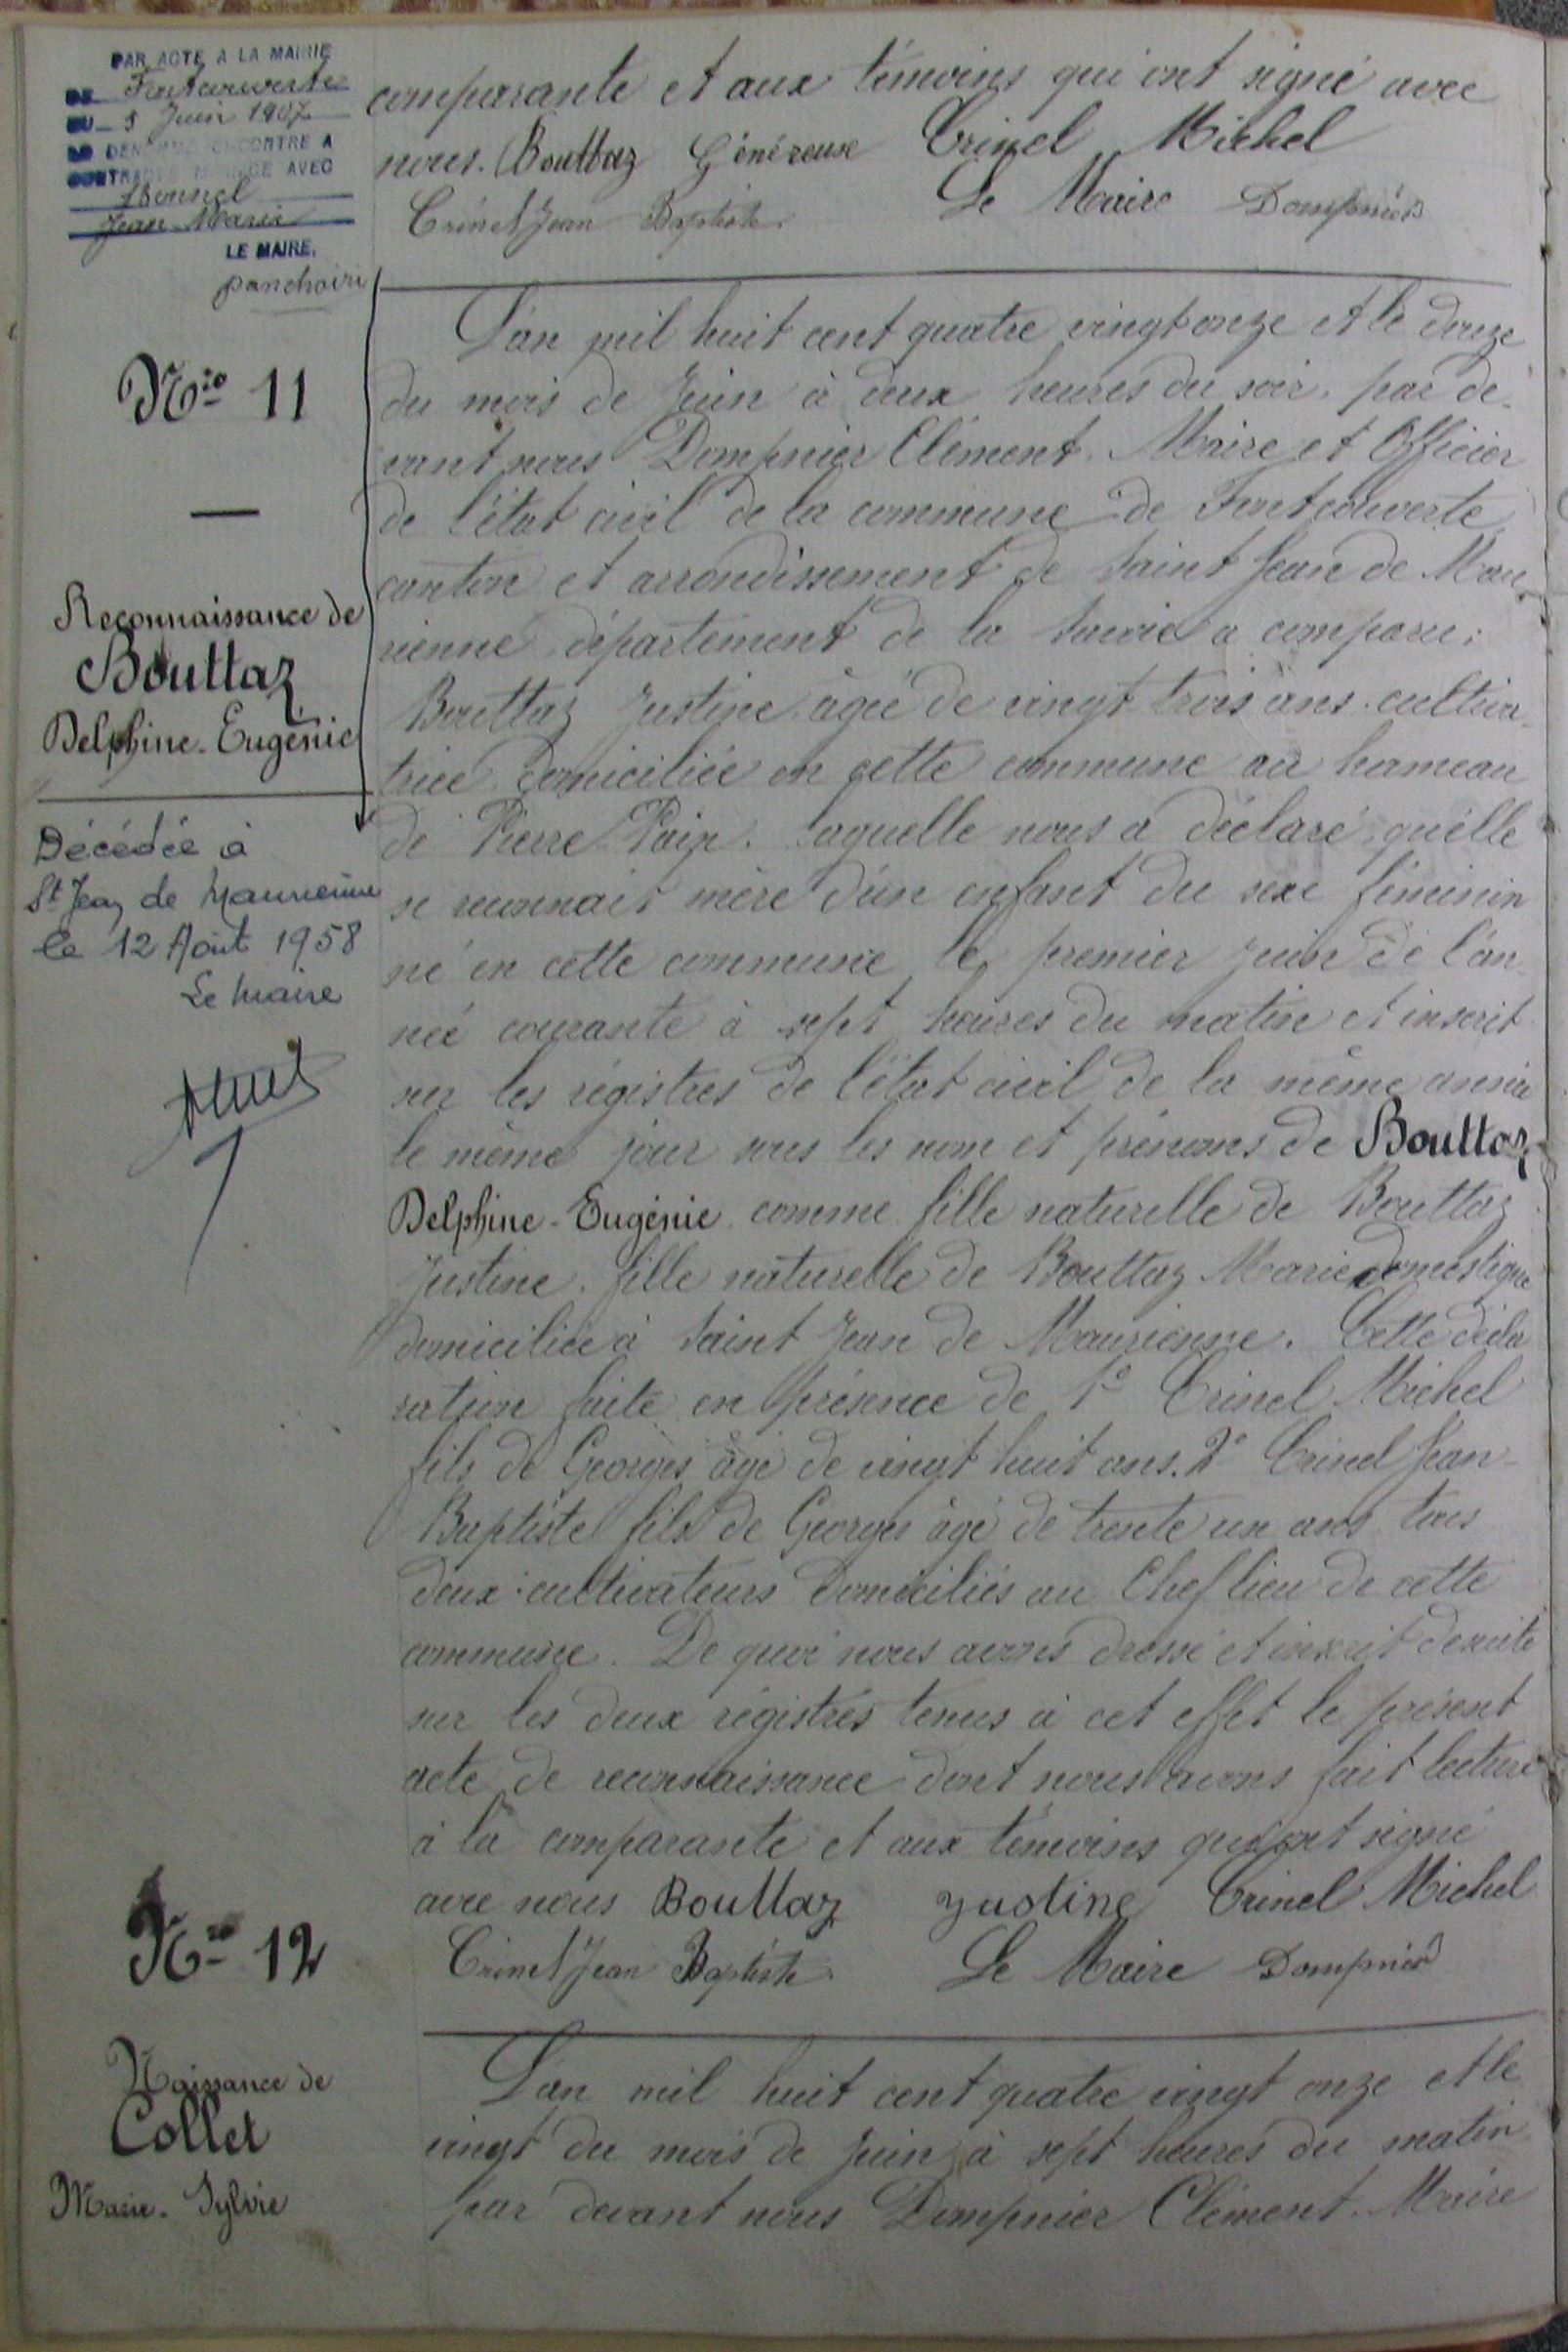 PAR ACTE A LA MAIRIE
DE Fontcouverte
DU 5 Juin 1907
CI-CONTRE A
CONTRACTÉ MARIAGE AVEC
Jean Marie
LE MAIRE,
comparante et aux témoins qui ont signé avec
nous. Bouttaz Généreuse Crinel Michel
Crinel Jean Baptiste. Le Maire Dompnier
Nro 11
Reconnaissance de
Bouttaz
Delphine-Eugénie
Décédée à
St Jean de Maurienne
le 12 Août 1958
Le Maire
L'an mil huit cent quatre vingt onze et le douze
du mois de Juin à deux heures du soir, par de-
vant nous Dompnier Clément, Maire et Officier
de l'état civil de la commune de Fontcouverte
canton et arrondissement de Saint Jean de Mau-
rienne, département de la Savoie a comparu:
Bouttaz Justine âgée de vingt trois ans, cultiva-
trice domiciliée en cette commune au hameau
de Pierre Paix. laquelle nous a déclaré qu'elle
se reconnait mère d'un enfant du sexe féminin
né en cette commune le premier juin de l'an-
née courante à sept heures du matin et inscrit
sur les régistres de l'état civil de la même année
le même jour sous les nom et prénoms de Bouttaz
Delphine-Eugénie comme fille naturelle de Bouttaz
Justine, fille naturelle de Bouttaz Marie domestique
domiciliée à Saint Jean de Maurienne. Cette décla
ration faite en présence de 1° Crinel Michel
fils de Georges âgé de vingt huit ans. 2° Crinel Jean-
Baptiste fils de Georges âgé de trente un ans tous
deux cultivateurs domiciliés au Chef lieu de cette
commune. De quoi nous avons dressé et inscrit desuite
sur les deux régistrés tenus à cet effet le présent
acte de reconnaissance dont nous avons fait lecture
à la comparante et aux témoins qui ont signé
avec nous Bouttaz Justine Crinel Michel
Crinel Jean Baptiste Le Maire Dompnier
Nro 12
Naissance de
Collet
Marie-Sylvie
L'an mil huit cent quatre vingt onze et le
vingt du mois de juin à sept heures du matin
par devant nous Dompnier Clément. Maire